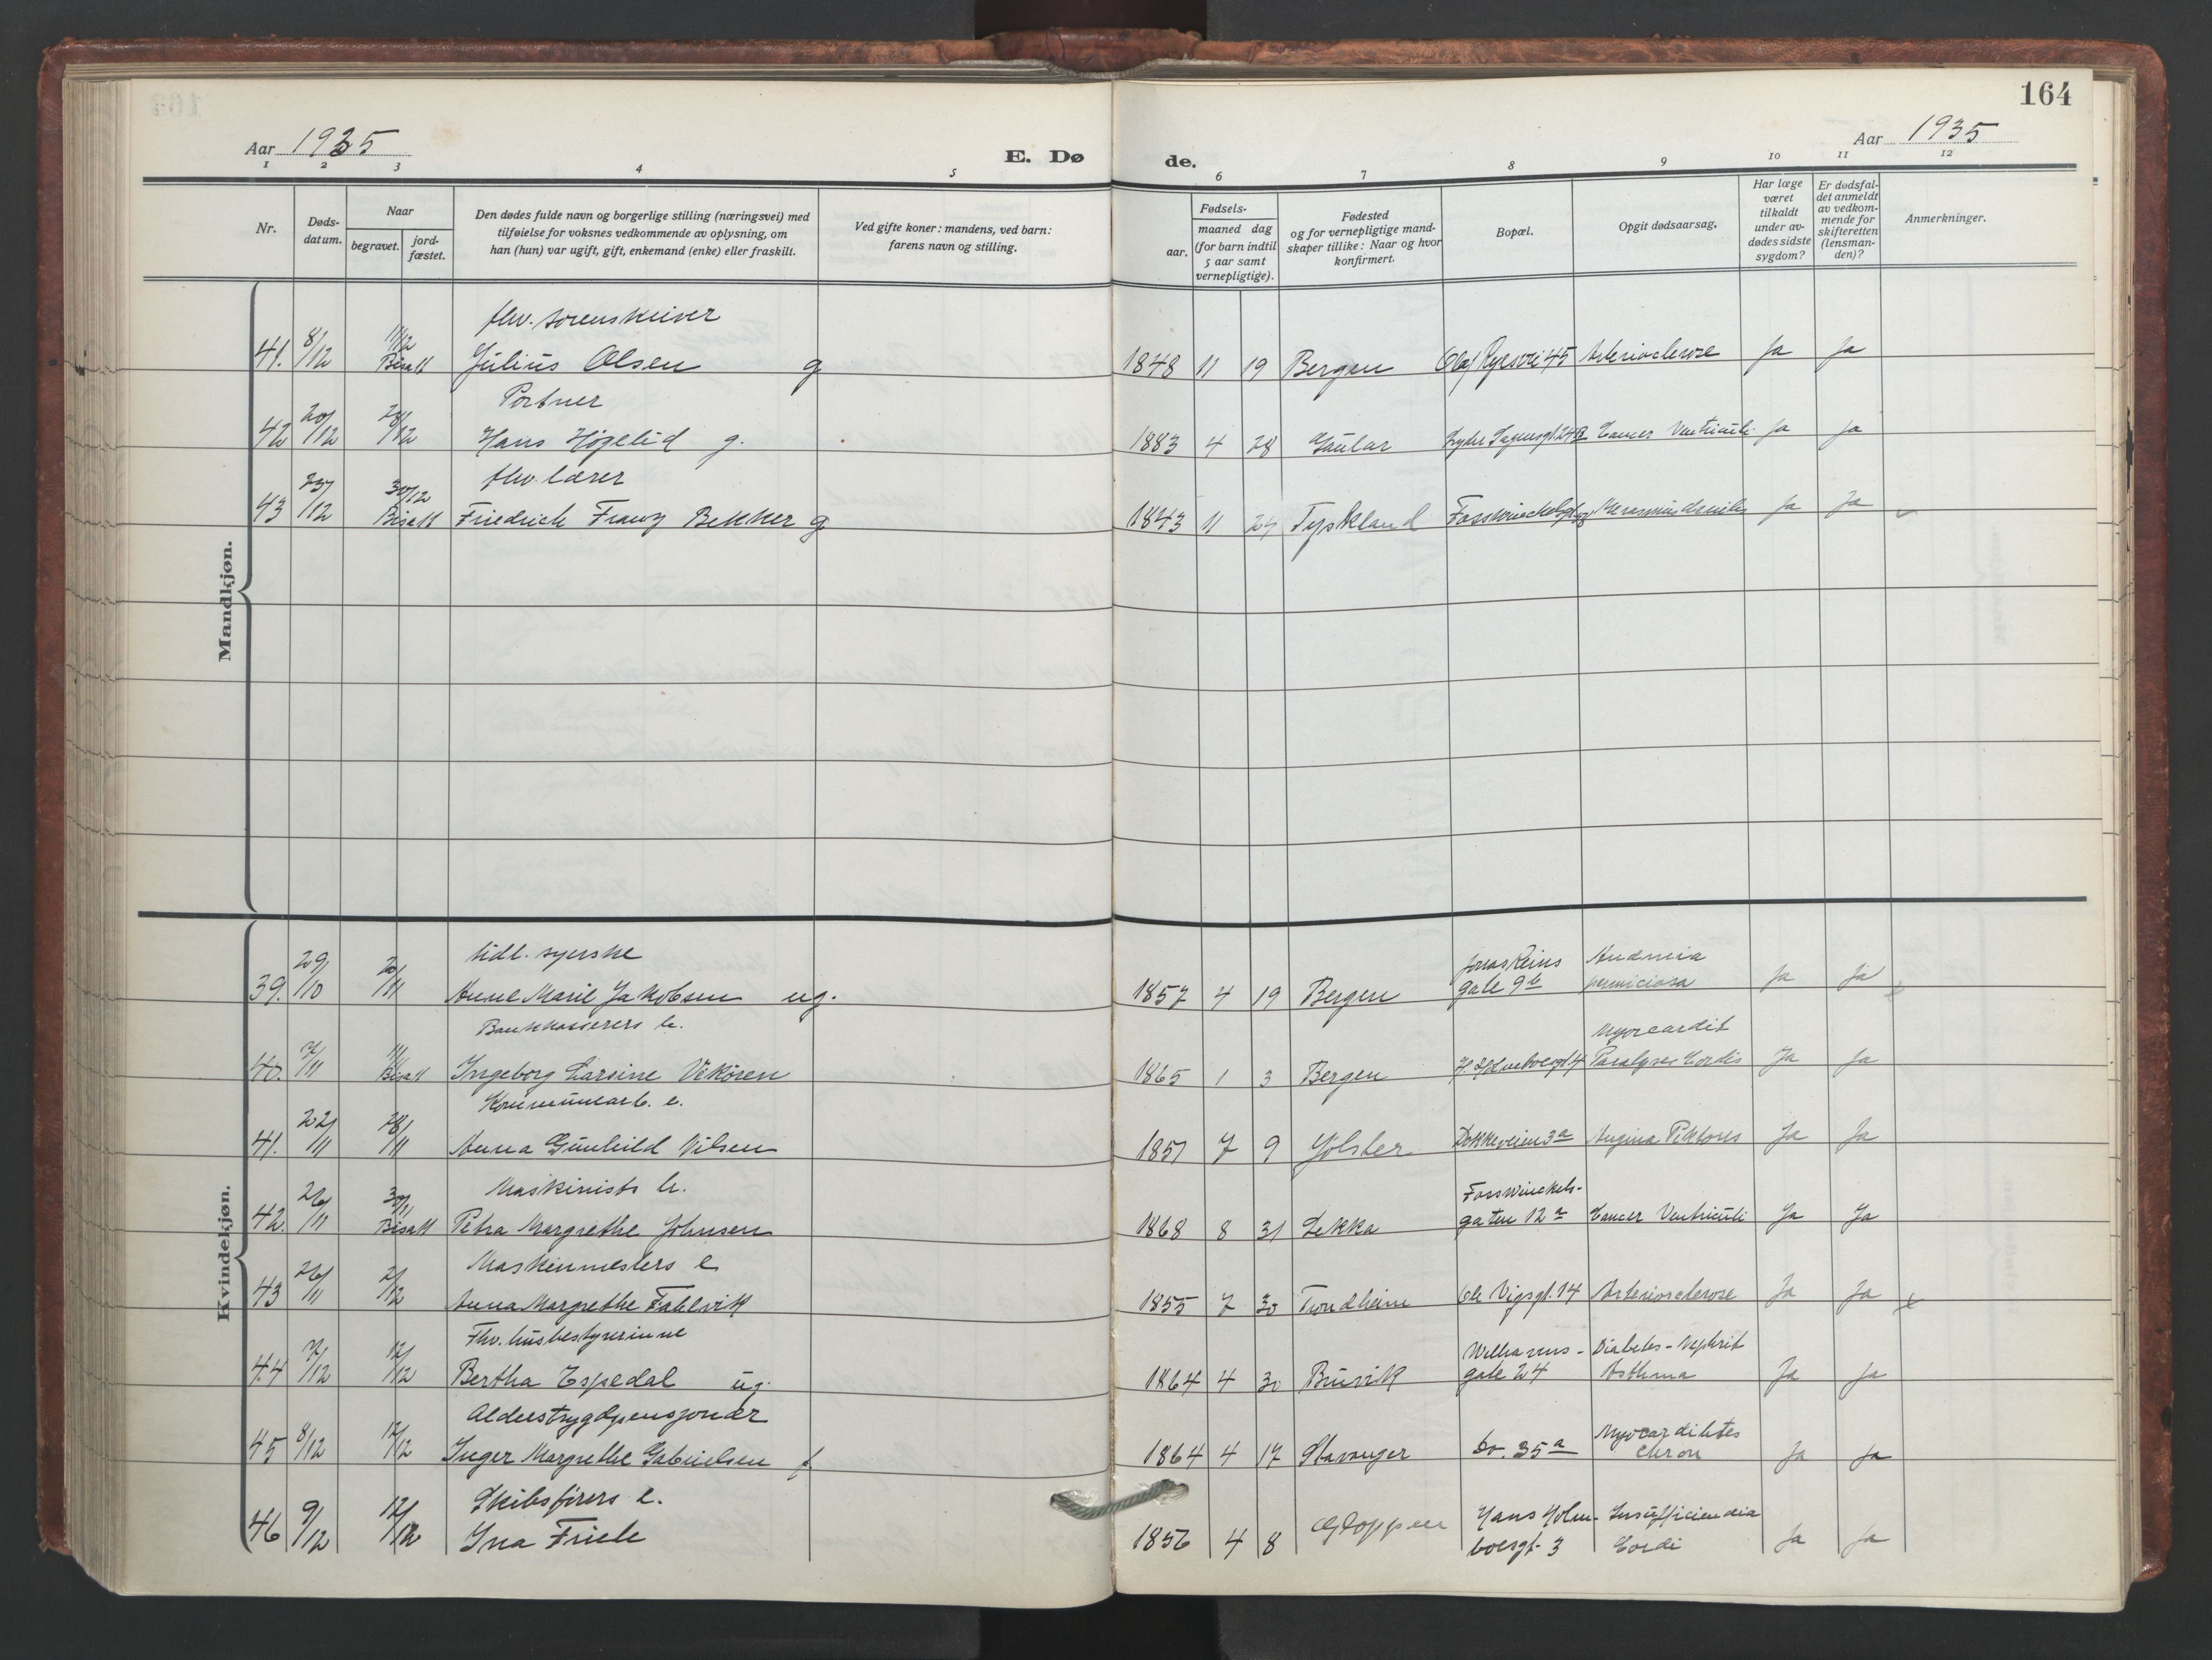 164
Aar 1935
E. Dø
de.
Aar 1935
1 2 3 4 5 6 7 8 9 10 11 12
Nr.
Døds-
datum.
Naar
begravet.
jord-
fæstet.
Den dødes fulde navn og borgerlige stilling (næringsvei) med
tilføielse for voksnes vedkommende av oplysning, om
han (hun) var ugift, gift, enkemand (enke) eller fraskilt.
Ved gifte koner: mandens, ved barn:
farens navn og stilling.
Fødsels-
aar.
maaned dag
(for barn indtil
5 aar samt
vernepligtige).
Fødested
og for vernepligtige mand-
skaper tillike: Naar og hvor
konfirmert.
Bopæl.
Opgit dødsaarsag.
Har læge
været
tilkaldt
under av-
dødes sidste
sygdom?
Er dødsfal-
det anmeldt
av vedkom-
mende for
skifteretten
(lensman-
den)?
Anmerkninger.
Mandkjøn.
fhv. sorenskriver
41. 8/12 11/12 Bisatt Julius Olsen g 1848 11 19 Bergen Olaf Ryesvei 45 Arteriosclerose Ja Ja
Portner
42 20/12 28/12 Hans Høgelid g. 1883 4 28 Gaular Lyder Sagensgt. 24B Cancer Ventriculi Ja Ja
fhv. lærer
43 23/12 30/12 Bisatt Friedrich Franz Bekker g 1843 11 24 Tyskland Ja Ja
Kvindekjøn.
tidl. syerske Jonas Reins Anæmia
39. 29/10 20/11 Anne Marie Jakobsen ug. 1857 4 19 Bergen gate 9b perniciosa Ja Ja x
Bankkasserers h. Myocardit
40. 7/11 11/11 Bisatt Ingeborg Larsine Vikören 1865 1 3 Bergen Paralyse Cordis Ja Ja
Kommunearb. e.
41. 22/11 28/11 Anna Gunhild Nilsen 1851 7 9 Jölster Dokkeveien 3a Angina Pektoris Ja Ja
Maskinists h. Fosswinckels-
42. 26/11 30/11 Bisatt Petra Margrethe Johnsen 1868 8 31 Lekka gaten 12a Cancer Ventriculi Ja Ja
Maskinmesters e
43 26/11 2/12 Anna Margrethe Fahlvik 1855 7 30 Trondheim Ole Vigsgt. 14 Arteriosclerose Ja Ja x
Fhv. husbestyrerinne Welhavens- Diabetes - Nephrit
44 7/12 12/12 Bertha Espedal ug. 1864 4 30 Buvik gate 24 Asthma Ja Ja
Alderstrygdpensjonær Myocarditetes
45 8/12 12/12 Inger Margrethe Gabrielsen f. 1864 4 17 Stavanger Do. 35a chron Ja Ja
Skibsførers e. Hans Holm- Insufficiendia
46 9/12 12/12 Ina Friele 1856 4 8 Gloppen boesgt. 3 Cordi Ja Ja